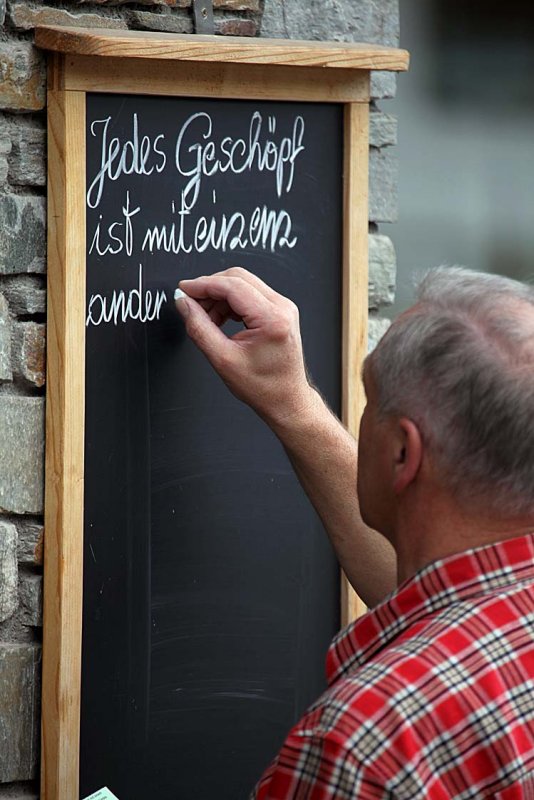 Jedes Geschöpf
ist mit einem
ander